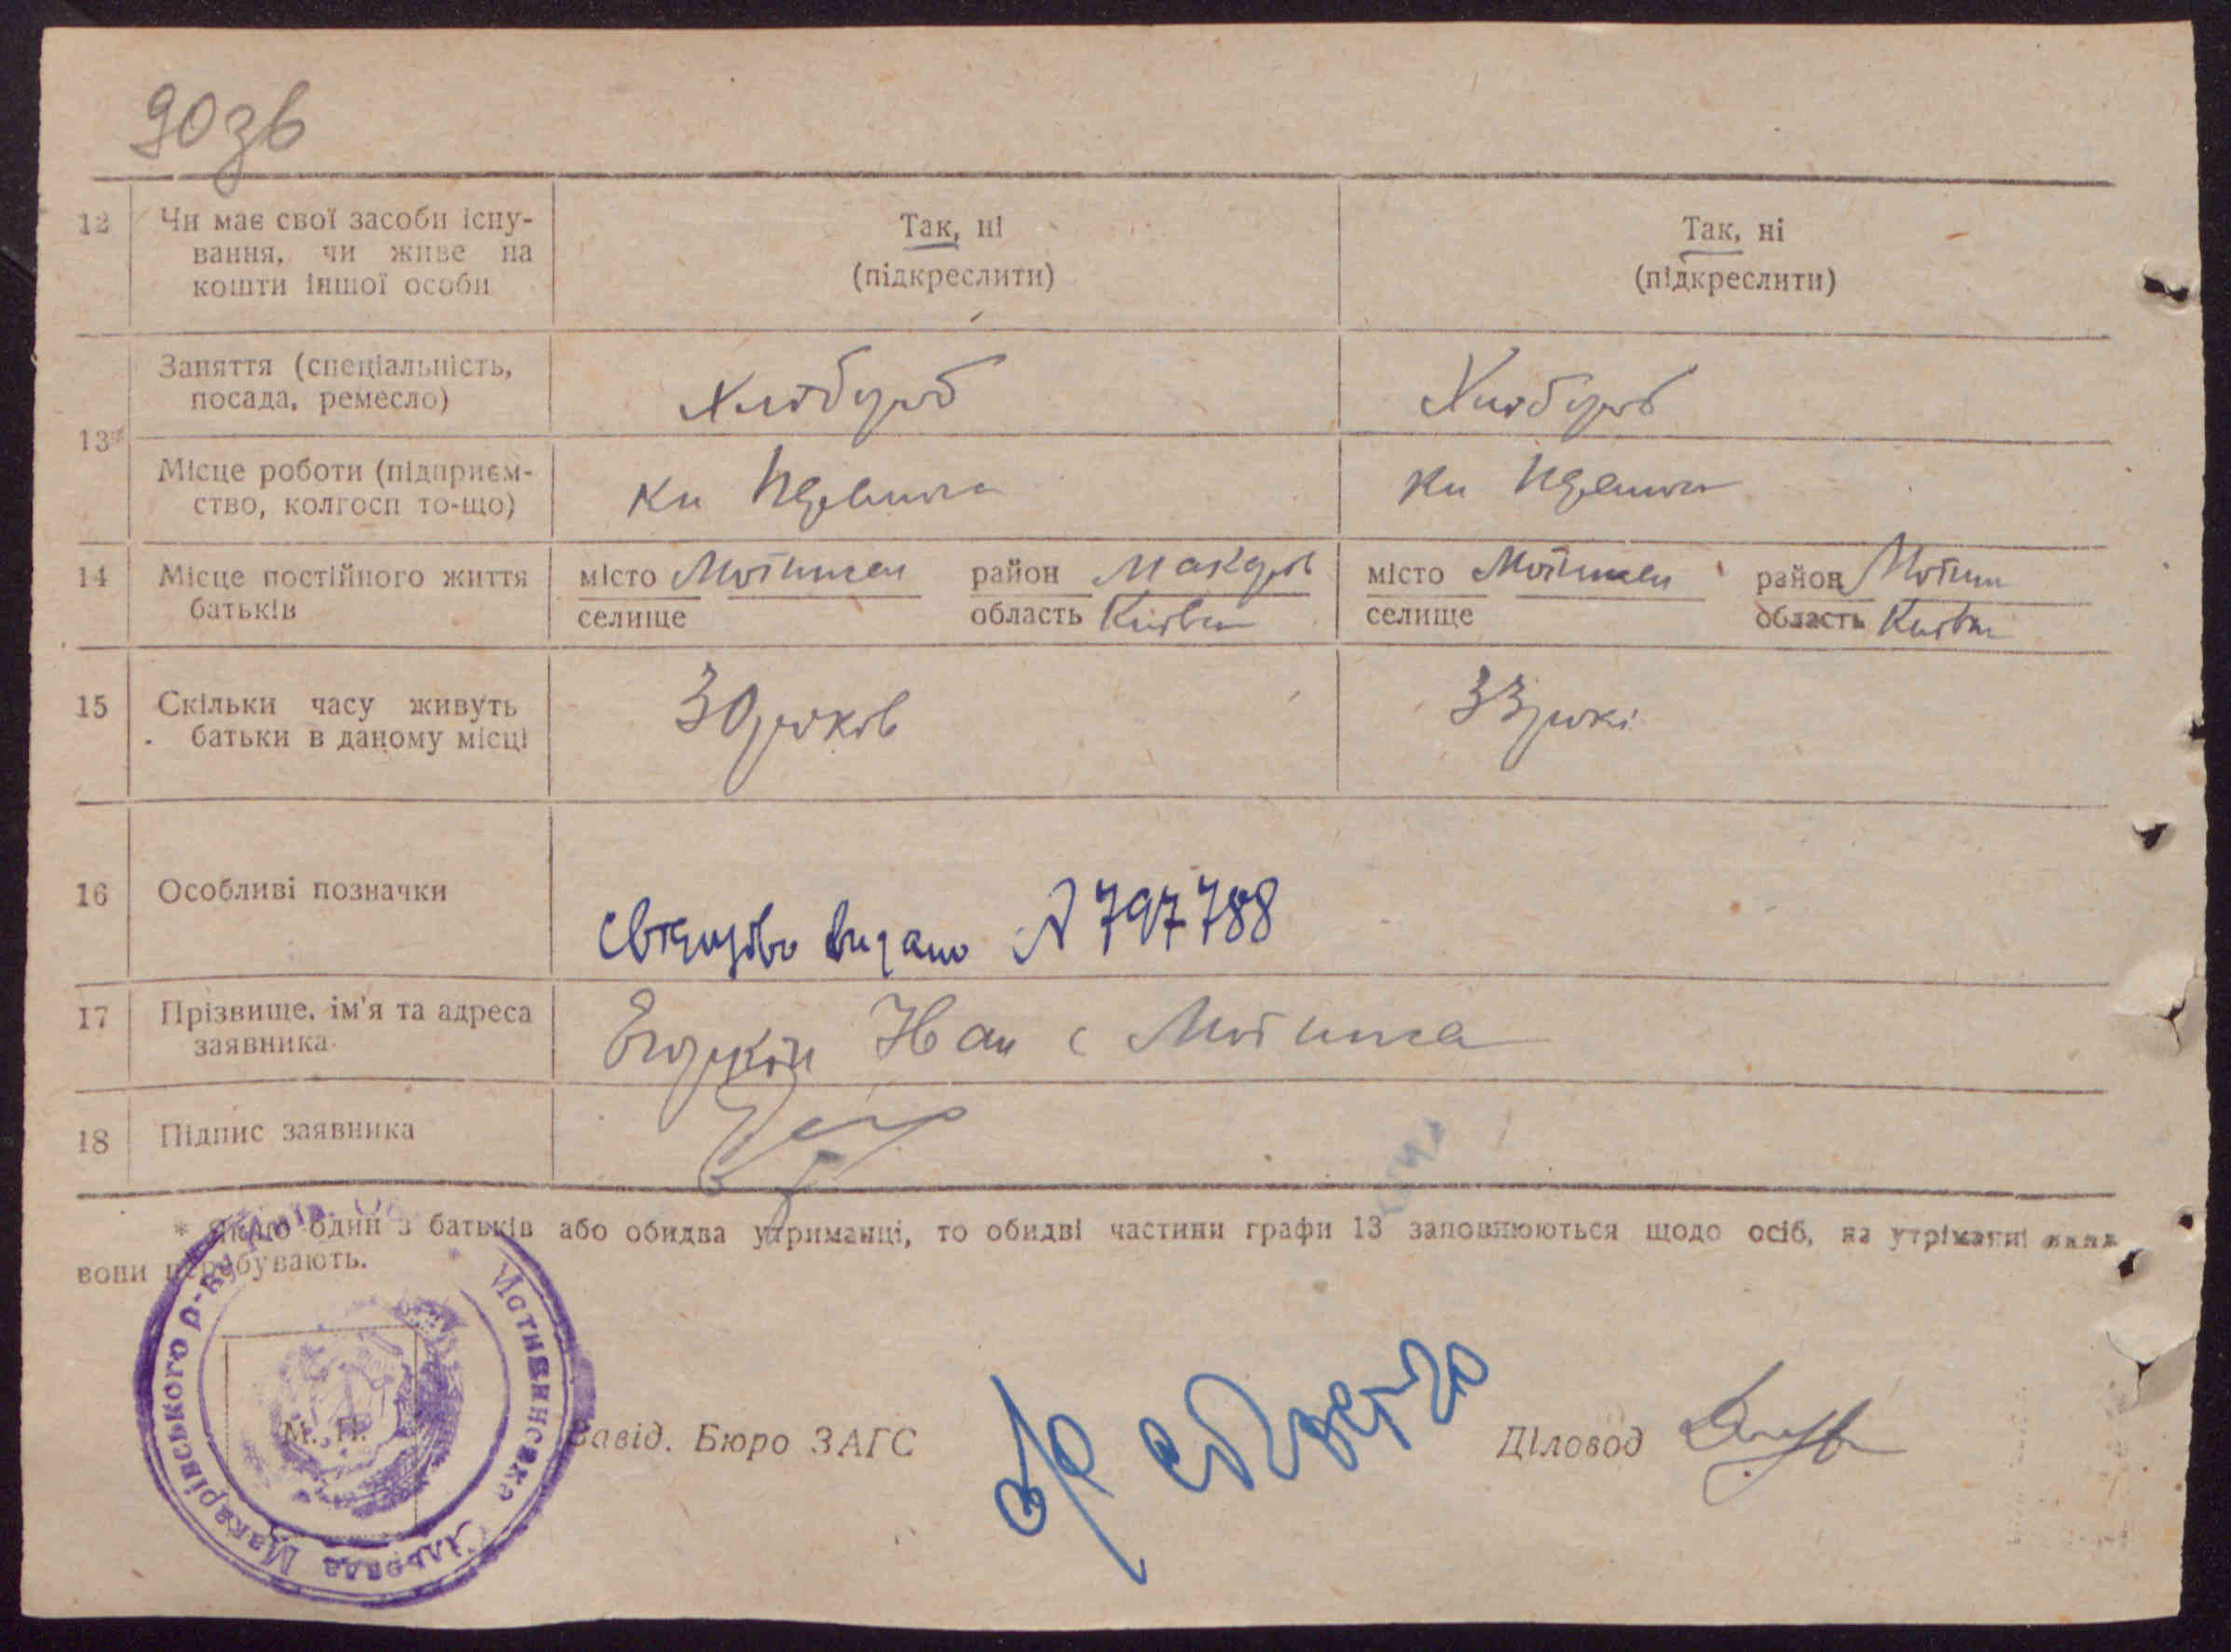 90зв
12 Чи має свої засоби існу-
вання, чи живе на
кошти іншої особи
Так, ні
(підкреслити)
Так, ні
(підкреслити)
13*
Заняття (спеціальність,
посада, ремесло)
Хлібороб
Хлібороб
Місце роботи (підприєм-
ство, колгосп то-що)
14 Місце постійного життя
батьків
місто Мотижин район Макарів
селище область Київськ
місто Мотижин район Мотиж
селище область Київськ
15 Скільки часу живуть
батьки в даному місці
30 років
33 роки
16 Особливі позначки
Свідоцтво видано № 797788
17 Прізвище, ім'я та адреса
заявника
Іван с Мотижин
18 Підпис заявника
* Якщо один з батьків або обидва утриманці, то обидві частини графи 13 заповнюються щодо осіб, на утріманні яких
вони перебувають.
Мотижинська сільрада Макарівського р-ну
М. П.
Завід. Бюро ЗАГС
Діловод